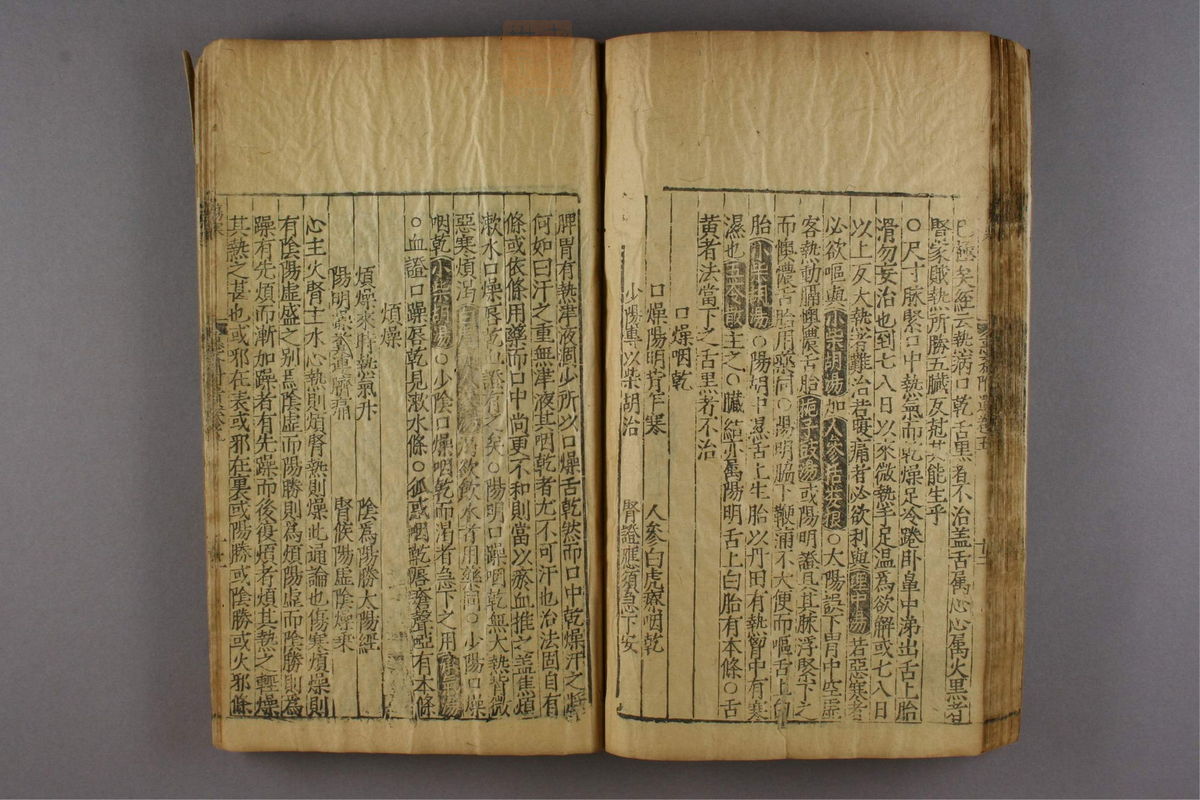 已極矣經云熱病口乾舌黑者不治蓋舌屬心心屬火黑者
腎家賊熱所勝五臟反甚其能生乎
○尺寸脉緊口中熱氣而乾燥足冷踡卧鼻中涕出舌上胎
滑勿妄治也到七八日以來微熱手足温爲欲解或七八日
以上反大熱者難治若腹痛者必欲利與理中湯若惡寒者
必欲嘔與小柴胡湯加人參括蔞根○大陽誤下胃中空虚
客熱動膈懊憹舌胎梔子豉湯或陽明證且其脉浮緊下之
而懊憹舌胎用藥同○陽明脇下鞕滿不大便而嘔舌上白
胎小柴胡湯○陽明中濕舌上生胎以丹田有熱胷中有寒
濕也五苓散主之○臟結亦屬陽明舌上白胎有本條○舌
黄者法當下之舌黑者不治
口燥咽乾
口燥陽明背乍寒 人參白虎療咽乾
少陽專以柴胡治 腎證應須急下安
脾胃有熱津液凋少所以口燥舌乾然而口中乾燥汗之將
何如曰汗之重無津液其咽乾者尤不可汗也治法固自有
條或依條用藥而口中尚更不和則當以瘀血推之盖焦煩
漱水口燥唇乾血證有之矣○陽明口躁咽乾無大熱背微
惡寒煩渴白虎加人參湯渴欲飲水者用藥同○少陽口燥
咽乾小柴胡湯○少陰口燥咽乾而渴者急下之用承氣湯
○血證口躁唇乾見漱水條○狐惑咽乾唇瘡聲啞有本條
煩燥
煩燥來時熱氣升 陰爲陽勝大陽經
陽明 腎候陽虚陰燥乘
心主火腎主水心熱則煩腎熱則燥此通論也傷寒煩燥則
有陰陽虚盛之别焉陰虚而陽勝則爲煩陽虚而陰勝則爲
躁有先煩而漸加躁者有先躁而後復煩者煩其熱之輕燥
其熱之甚也或邪在表或邪在裏或陽勝或陰勝或火邪條